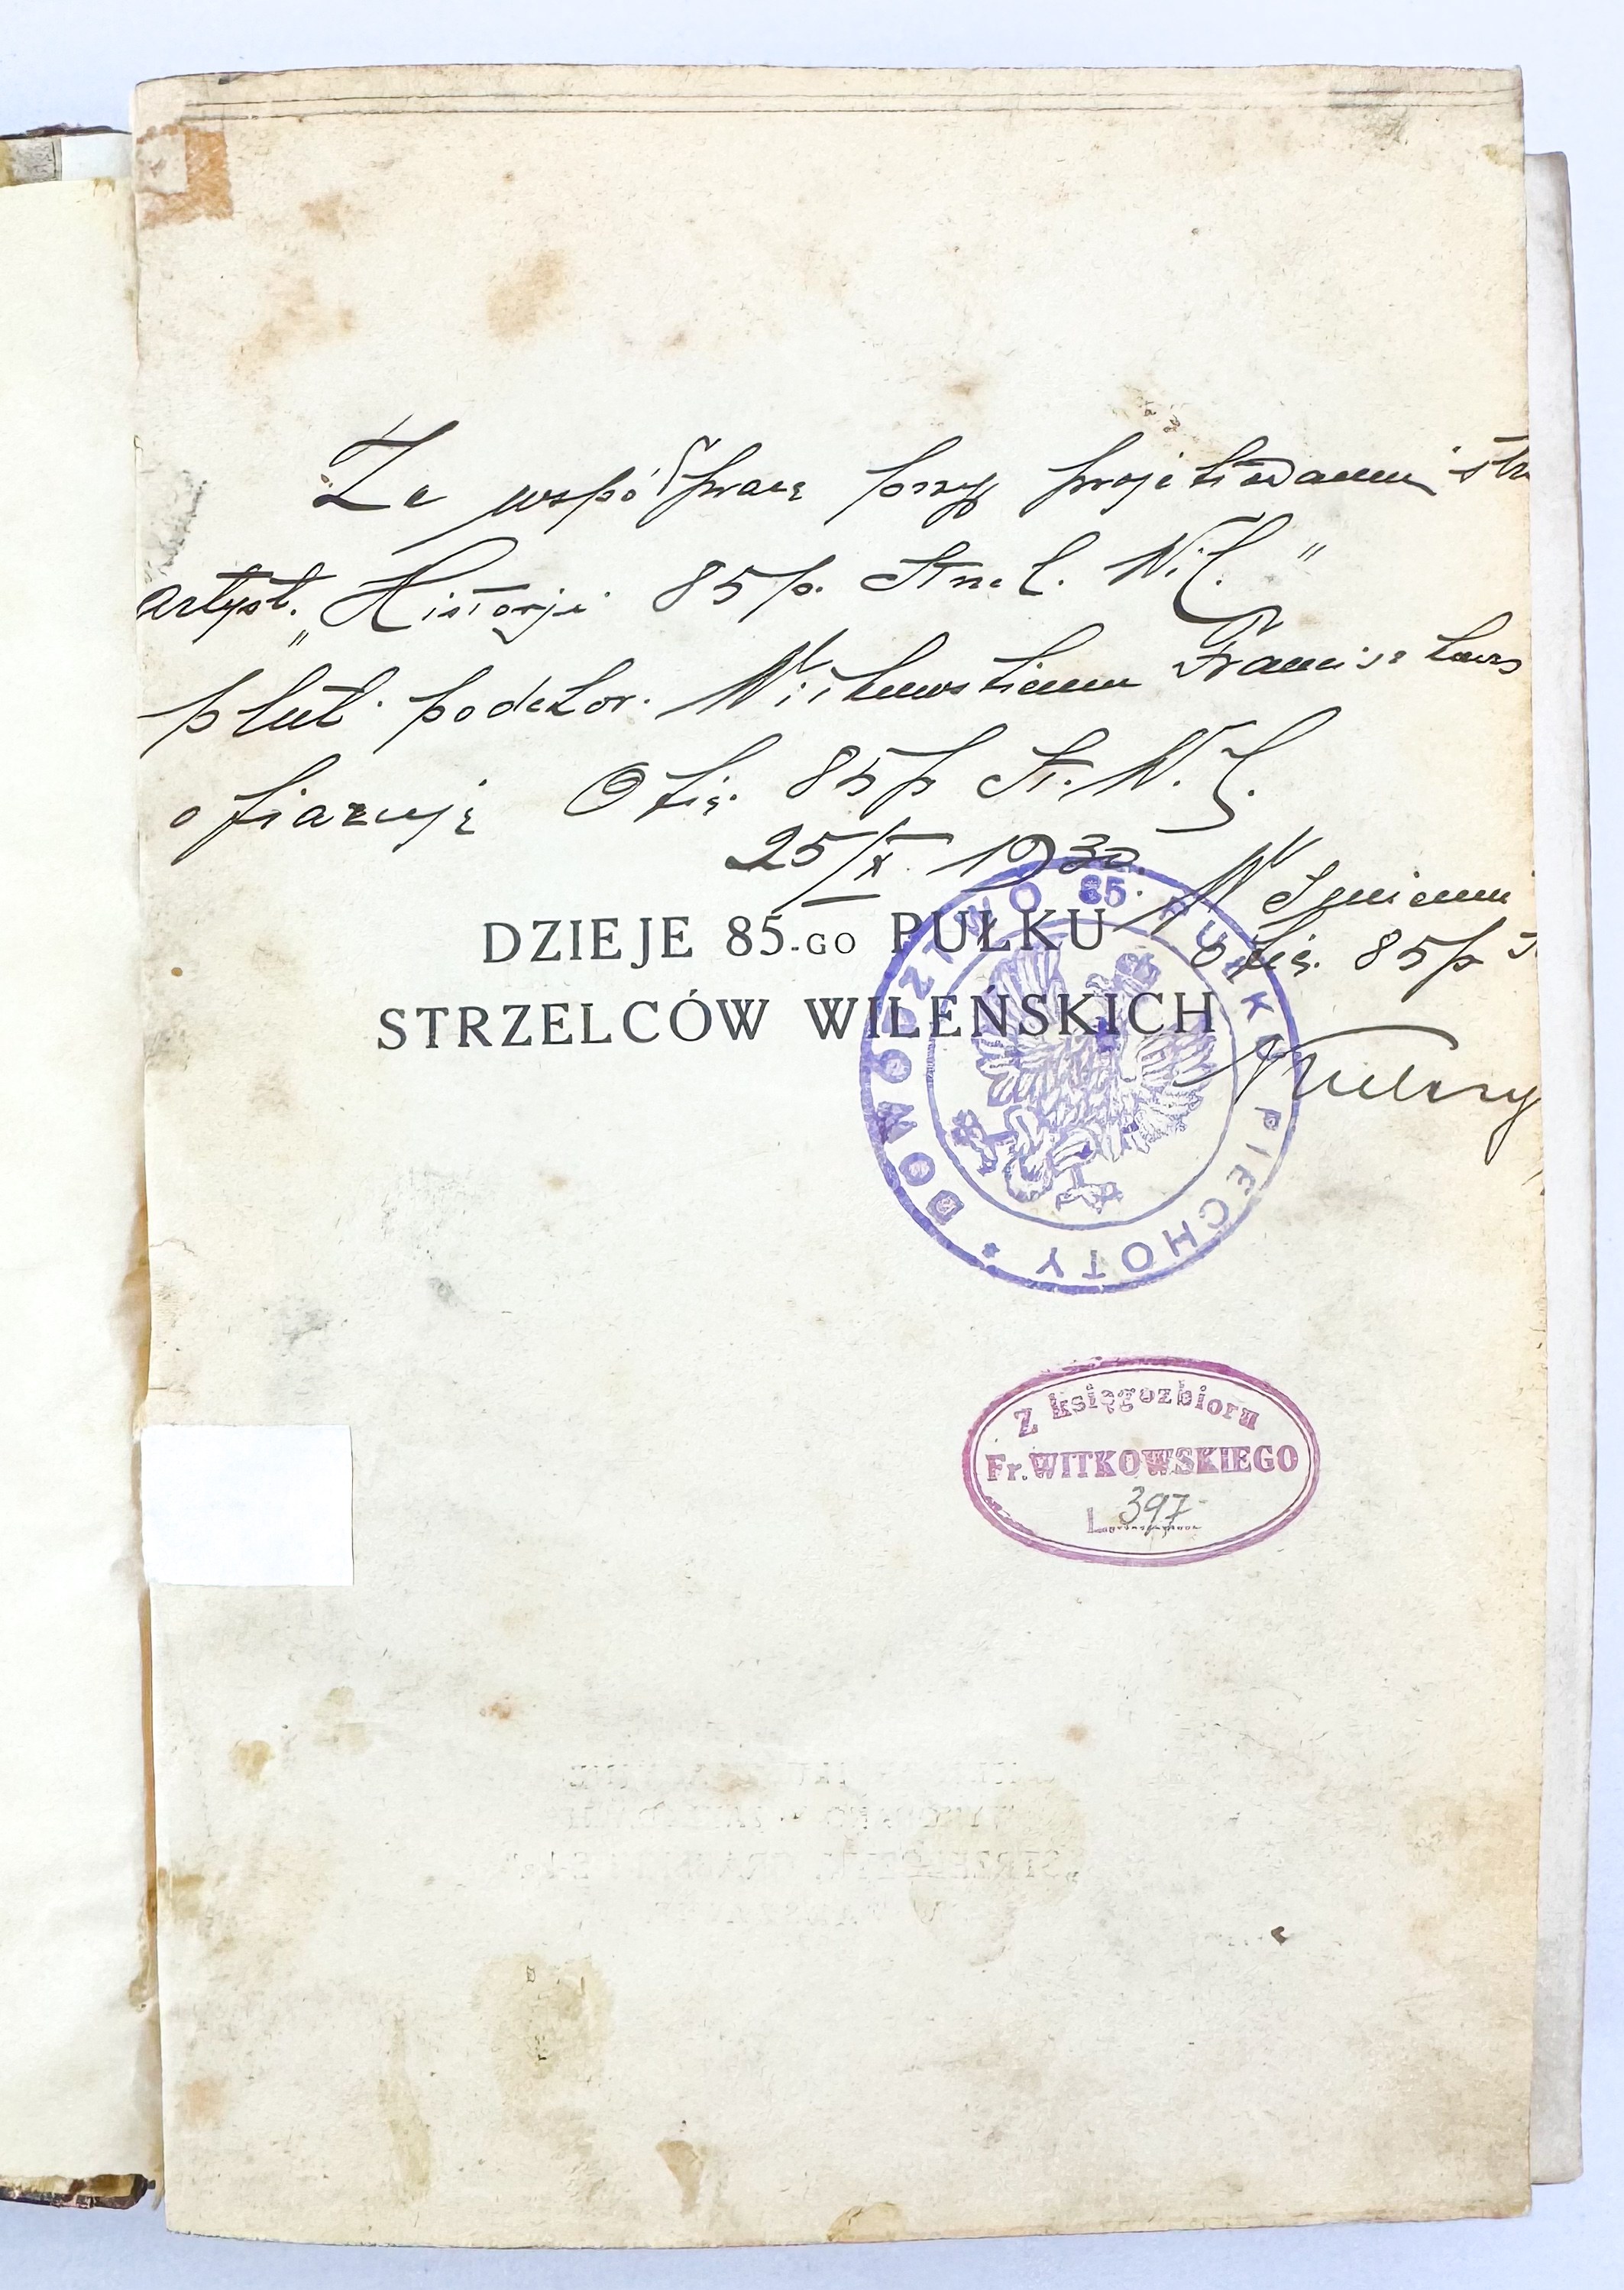 Za współpracę przy projektowaniu str
artyst. „Historji 85 p. Strzel. Wil."
plut. podchor. Witkowskiemu Franciszkowi
ofiarują Ofic. 85 p St. W.
25/X 1930.
W Imieniu
Ofic. 85 p
DZIEJE 85-GO PUŁKU
STRZELCÓW WILEŃSKICH
DOWÓDZTWO 85. PUŁKU PIECHOTY *
Z księgozbioru
Fr. WITKOWSKIEGO
L. 397